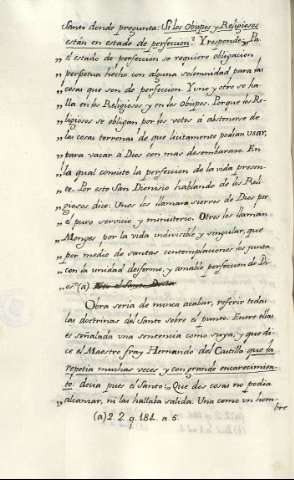 Santo donde pregunta: Si los Obispos y Religiosos
están en estado de perfeccion? Y responde: „Pa„
„ra el estado de perfeccion se requiere obligacion
„perpetua hecha con alguna solemnidad para las
„cosas que son de perfeccion. Y uno y otro se ha„
„lla en los Religiosos y en los Obispos. Porque los Re„
„ligiosos se obligan por los votos á abstenerse de
„las cosas terrenas de que licitamente podian usar,
„para vacar á Dios con mas desembarazo. En
„la qual consiste la perfeccion de la vida presen„
„te. Por esto San Dionisio hablando de los Reli„
„giosos dice: Unos los llaman siervos de Dios por
„el puro servicio y ministerio. Otros los llaman
„Monges, por la vida indivisible y singular, que
„por medio de santas contemplaciones los junta
„con la unidad deiforme, y amable perfeccion de Di„
„os." (a)
Obra seria de nunca acabar, referir todas
las doctrinas del Santo sobre el punto. Entre ellas
es señalada una sentencia como suya, y que di„
ce el Maestro fray Hernando del Castillo que la
repetia muchas veces y con grande encarecimien„
to. decia pues el Santo: „Que dos cosas no podia
„alcanzar, ni las hallaba salida. Una como un hom„
bre
(a) 2. 2. q. 184. a. 5.